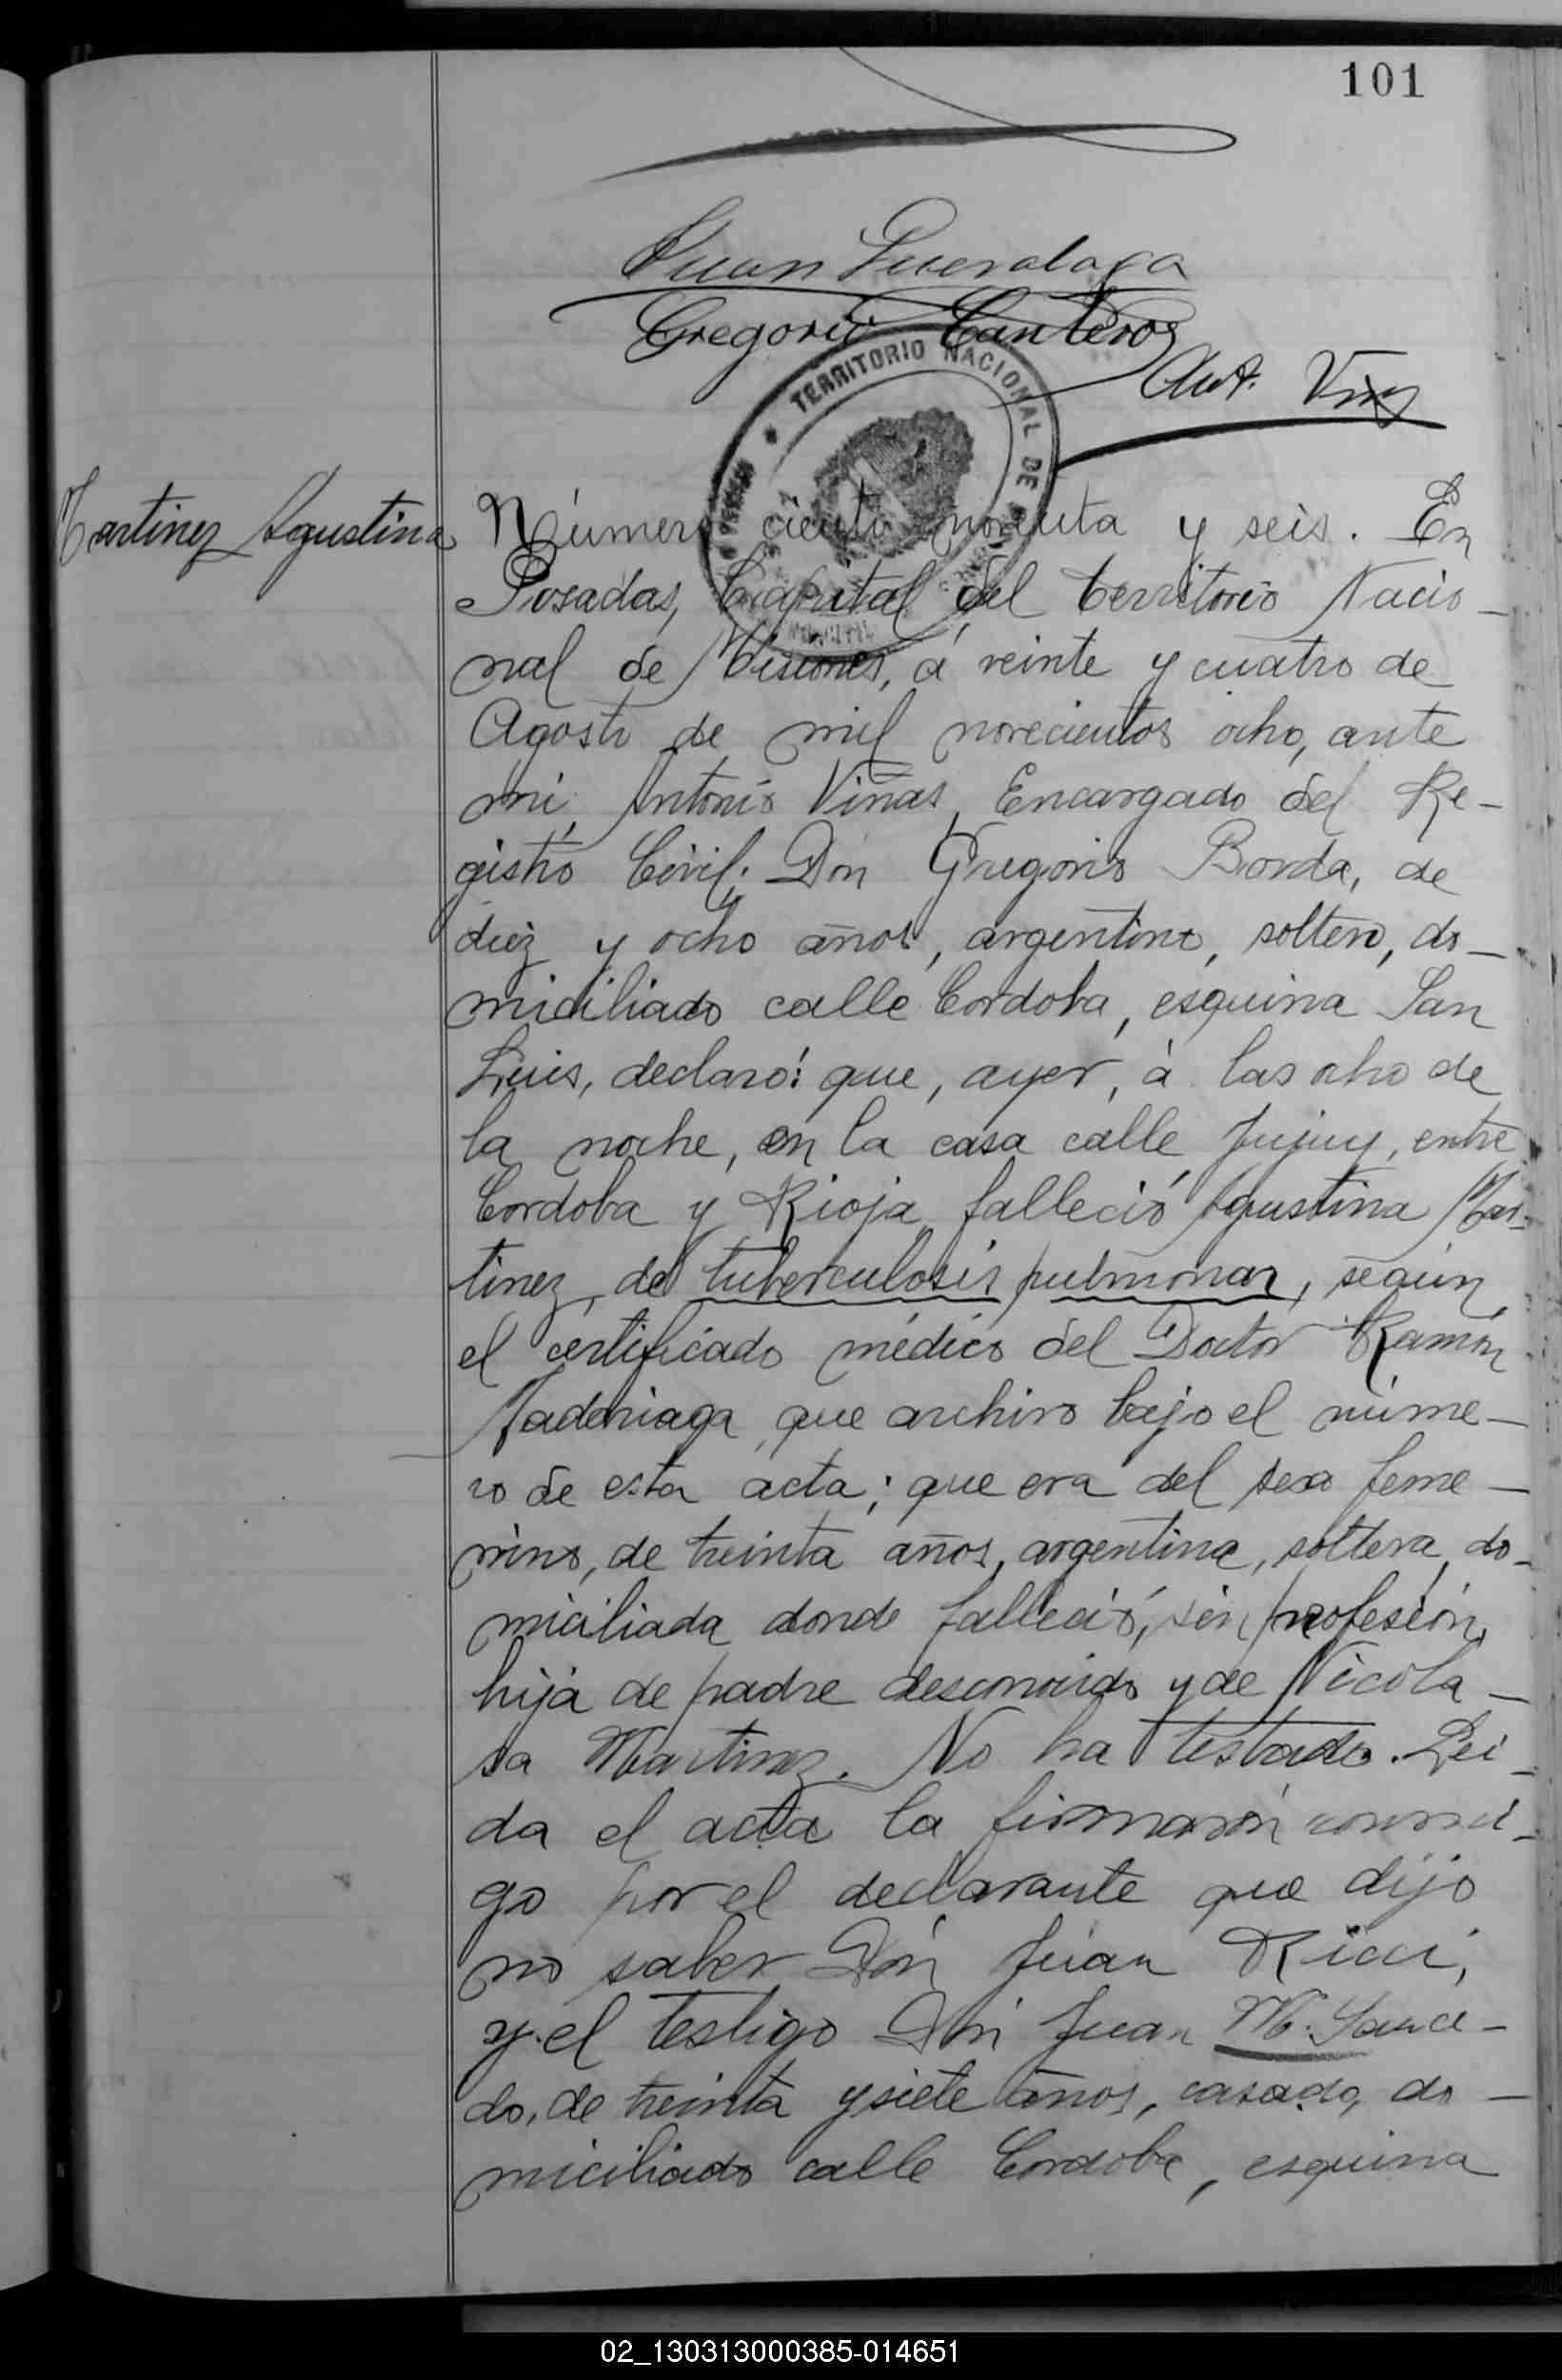 101
Juan
Gregorio Canteros
Ant. Viñas
TERRITORIO NACIONAL DE
Martinez Agustina
Número ciento noventa y seis. En
Posadas, Capital del territorio Nacio-
nal de Misiones, á veinte y cuatro de
Agosto de mil novecientos ocho, ante
mi, Antonio Viñas, Encargado del Re-
gistro Civil; Don Gregorio Borda, de
diez y ocho años, argentino, soltero, do-
miciliado calle Cordoba, esquina San
Luis, declaró: que, ayer, á las ocho de
la noche, en la casa calle Jujuy, entre
Cordoba y Rioja falleció Agustina Mar-
tinez, de tuberculosis pulmonar, según
el certificado médico del Doctor Ramón
Madariaga, que archivo bajo el núme-
ro de esta acta; que era del sexo feme-
nino, de treinta años, argentina, soltera, do-
miciliada donde falleció, sin profesión,
hija de padre desconocido y de Nicola-
sa Martinez. No ha testado. Lei-
da el acta la firmaron conmi-
go por el declarante que dijo
no saber Don Juan Ricci,
y el testigo Don Juan M. Sauce-
do, de treinta y siete años, casado, do-
miciliado calle Cordoba, esquina
02_130313000385-014651